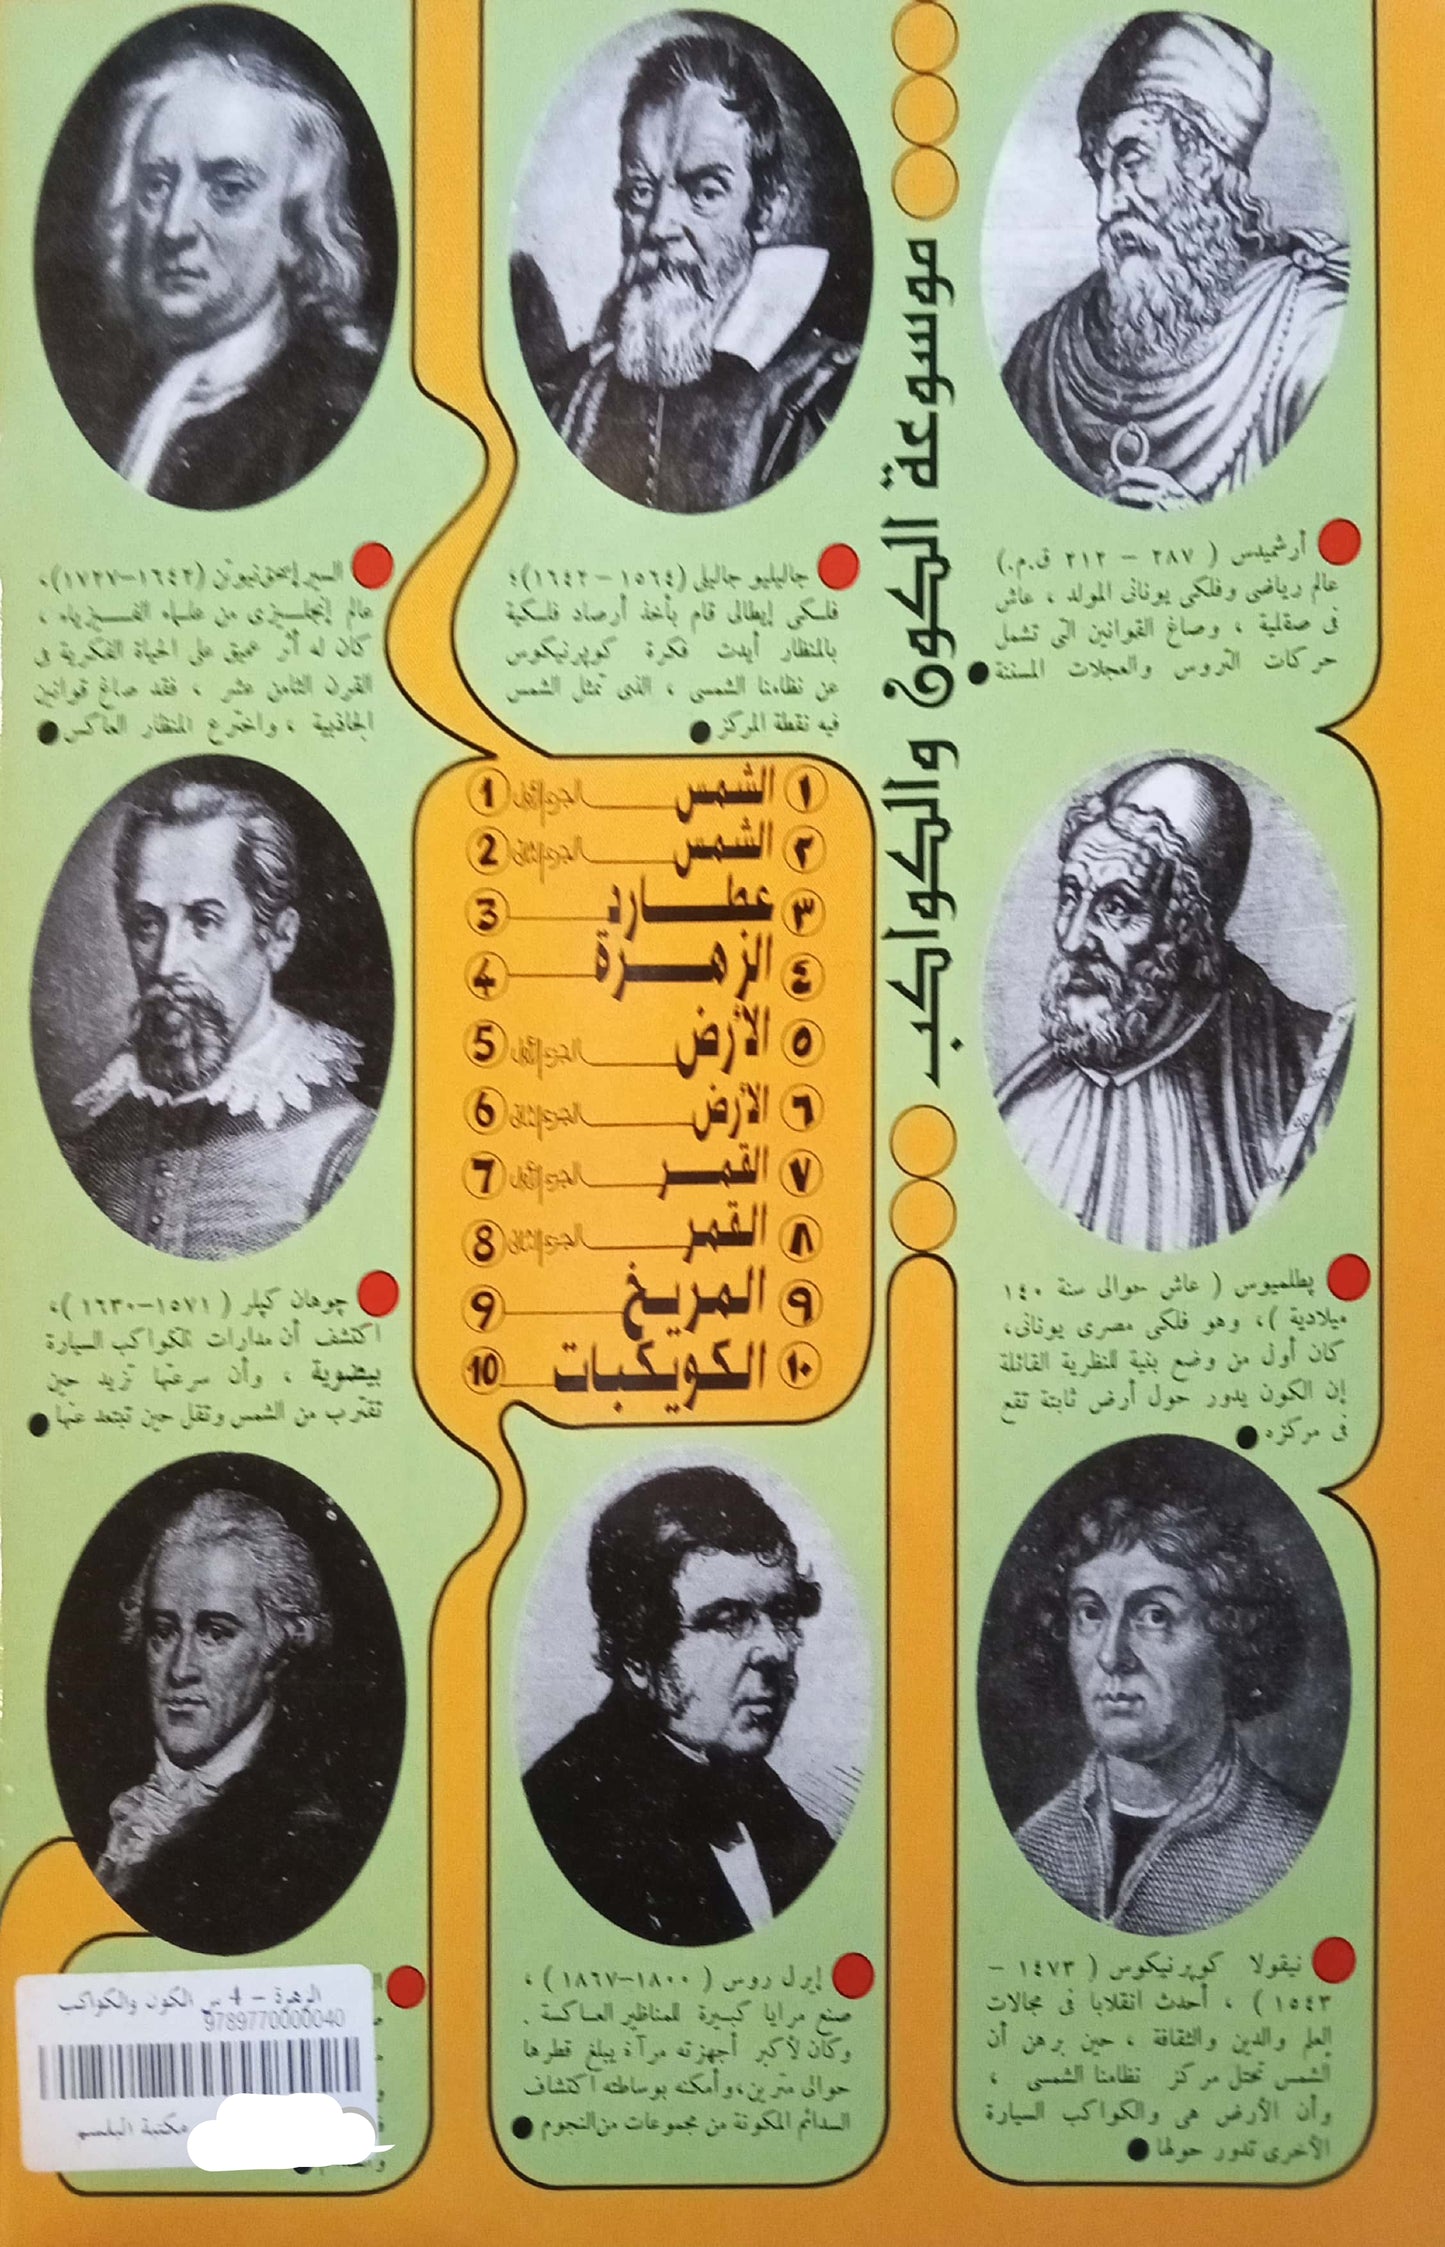 موسوعة الكون والكواكب
أرشميدس ( ٢٨٧ – ٢١٢ ق.م.)
عالم رياضى وفلكى يونانى المولد ، عاش
فى صقلية ، وصاغ القوانين التى تشمل
حركات التروس والعجلات المسننة
بطلميوس ( عاش حوالى سنة ١٤٠
ميلادية )، وهو فلكى مصرى يونانى،
كان أول من وضع بنية للنظرية القائلة
إن الكون يدور حول أرض ثابتة تقع
فى مركزه
نيقولا كوپرنيكوس ( ١٤٧٣ –
١٥٤٣ ) ، أحدث انقلابا فى مجالات
العلم والدين والثقافة ، حين برهن أن
الشمس تحتل مركز نظامنا الشمسى ،
وأن الأرض هى والكواكب السيارة
الأخرى تدور حولها
جاليليو جاليلى (١٥٦٤ – ١٦٤٢)؛
فلكى إيطالى قام بأخذ أرصاد فلكية
بالمنظار أيدت فكرة كوپرنيكوس
عن نظامنا الشمسى ، الذى تمثل الشمس
فيه نقطة المركز
١ الشمس الجزء الأول 1
٢ الشمس الجزء الثانى 2
٣ عطارد 3
٤ الزهرة 4
٥ الأرض الجزء الأول 5
٦ الأرض الجزء الثانى 6
٧ القمر الجزء الأول 7
٨ القمر الجزء الثانى 8
٩ المريخ 9
١٠ الكويكبات 10
إيرل روس ( ١٨٠٠–١٨٦٧ ) ،
صنع مرايا كبيرة للمناظير العاكسة .
وكان لأكبر أجهزته مرآة يبلغ قطرها
حوالى مترين، وأمكنه بوساطته اكتشاف
السدائم المكونة من مجموعات من النجوم
السير إسحق نيوتن (١٦٤٢–١٧٢٧)،
عالم إنجليزى من علماء الفيزياء ،
كان له أثر عميق على الحياة الفكرية فى
القرن الثامن عشر ، فقد صاغ قوانين
الجاذبية ، واخترع المنظار العاكس
چوهان كپلر ( ١٥٧١–١٦٣٠ )،
اكتشف أن مدارات الكواكب السيارة
بيضوية ، وأن سرعتها تزيد حين
تقترب من الشمس وتقل حين تبتعد عنها
الزهرة – 4 س الكون والكواكب
9789770000040
مكتبة البلسم